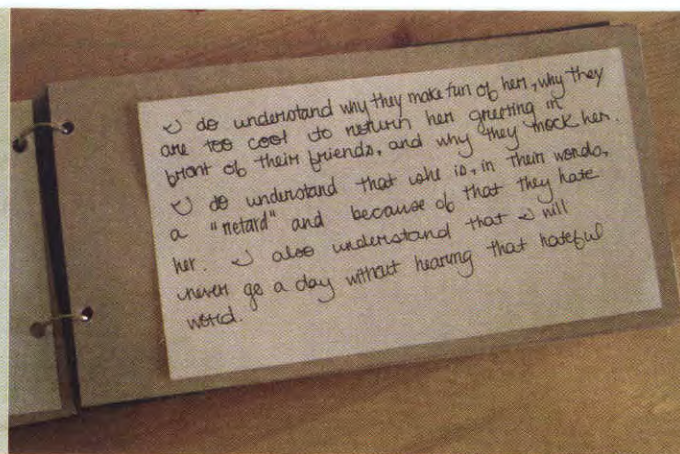 I do understand why they make fun of her, why they
are too cool to return her greeting in
front of their friends, and why they mock her.
I do understand that she is, in their words,
a "retard" and because of that they hate
her. I also understand that I will
never go a day without hearing that hateful
word.